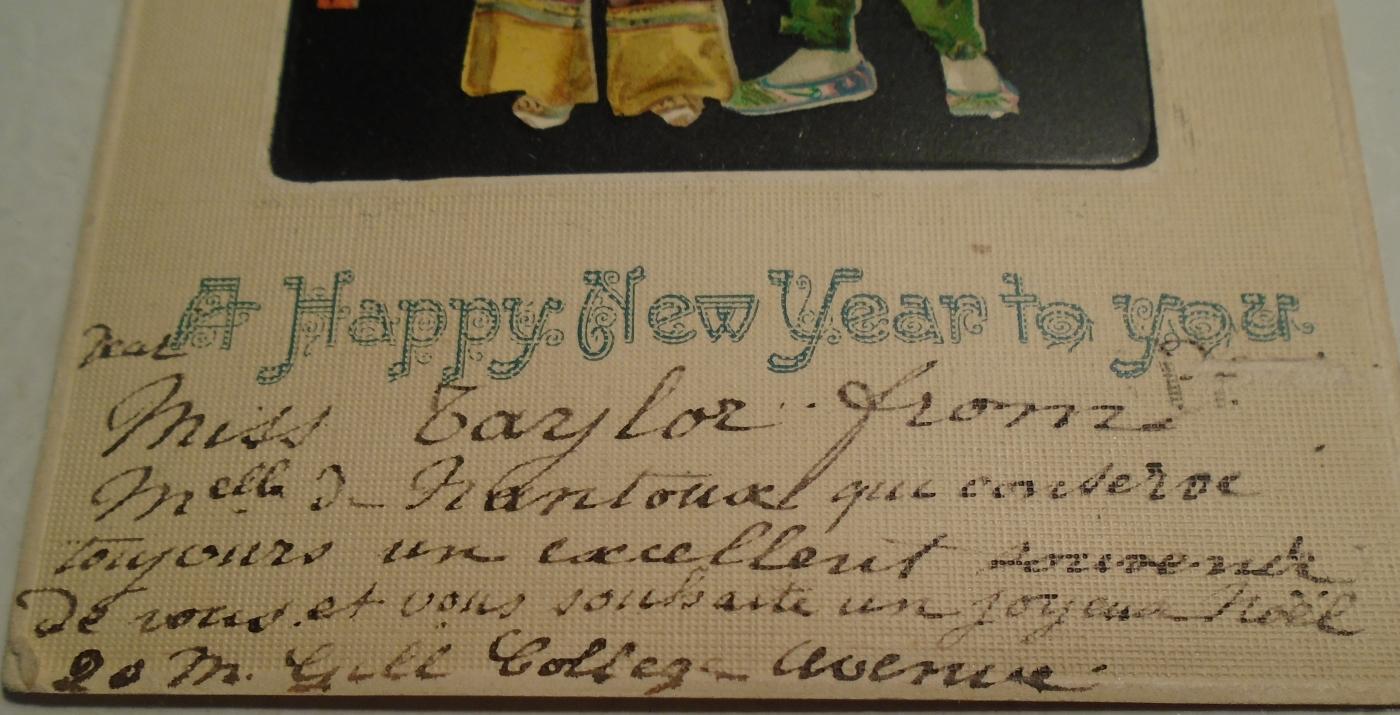 A Happy New Year to you.
Dear
Miss Taylor from
Melle de Nantoux qui conserve
toujours un excellent souvenir
De vous et vous souhaite un joyeux Noël
20 M. Gill College Avenue